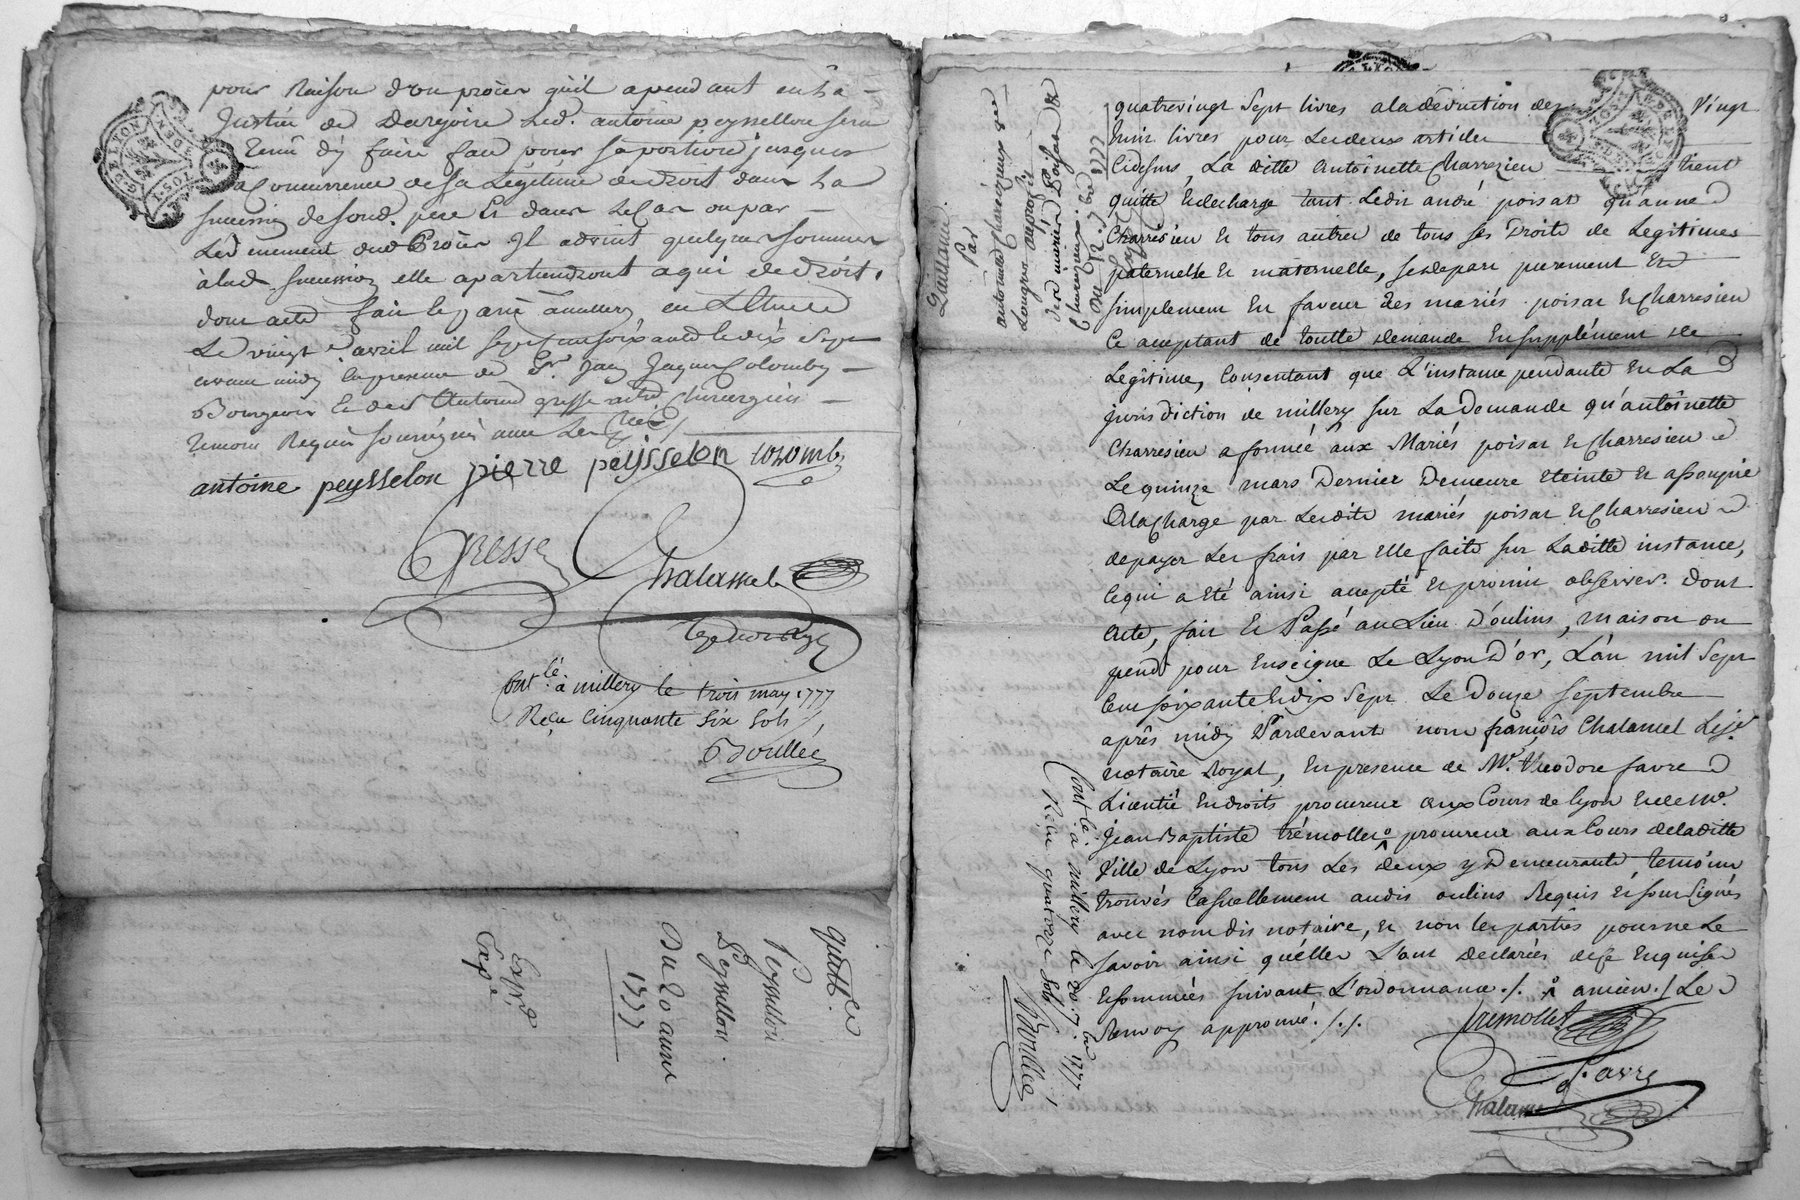 pour Raison d'un procès qu'il a pendant en la
Justice de Dargoire led. antoine peyssellon sera
tenu d'y faire face pour sa portion jusques
a Concurrence de sa Légitime de droit dans la
succession de feu sond. pere Et dans le Cas ou par
L'évènement dud Procès Il advint quelques sommes
à lad. succession elle apartiendront a qui de droit.
dont acte fait le passé a millery en L'Etude
Le vingt avril mil sept cent soixante dix sept
avant midy En presence de Sr. Jacques Colomby
Bourgeois Et de Sr Antoine gresse Chirurgien
temoins Requis soussignés avec les
antoine peysselon pierre peysselon colomby
Gresse
Chalamel
Cont.lé à millery le trois may 1777
Reçu Cinquante six sols
Boullée
quitt.ce
Peyssellon
Peyssellon
Du 20 avril
1777
Expé
G.D.LYON
quatrevingt sept livres a la déduction des Vingt
huit livres pour les deux articles
Cidessus, La ditte Antoinette Charresieu tient
quitte Et decharge tant Ledit andré poisat qu'anne
Charresieu Et tous autres de tous ses Droits de Legitimes
paternelle Et maternelle, se depart purement Et
simplement En faveur des mariés poisat Et Charresieu
Ce acceptant de toutte demande En supplément de
Legitime, Consentant que L'instance pendante En La
jurisdiction de millery sur La Demande qu'antoinette
Charresieu a formée aux Mariés poisat Et Charresieu
Le quinze mars Dernier Demeure eteinte Et assoupie
A la Charge par Lesdits mariés poisat Et Charresieu
de payer Les frais par Elle faits sur La ditte instance,
ce qui a Eté ainsi accepté Et promis observer. Dont
Acte, fait Et Passé au Lieu D'oulins, maison ou
pend pour Enseigne Le Lyon D'or, L'an mil Sept
Cent soixante Et dix Sept Le Douze Septembre
après midy Pardevant nous françois Chalamel
notaire Royal, En presence de Mr. theodore favre
Licentié En droits procureur aux Cours de lyon Et de Mr.
Jean Baptiste trémollet procureur aux Cours de la ditte
Ville de Lyon tous Les deux y Demeurants temoins
trouvés Casuellement audit oulins Requis Et soussignés
avec nous dit notaire, Et non les parties pour ne Le
savoir ainsi qu'elles L'ont Declarées de ce Enquises
Et sommées suivant L'ordonnance ./. ancien ./ Le
Renvoy approuvé ./.
Tremollet
Favre
Chalamel
Quittance
Par
antoinette Charesieux
au profit
des d mariés Poisat &
Charesieux.
Du 12. 7bre 1777
Cont.lé a millery le 20. 7bre 1777
Reçu quatorze sols
Boullée